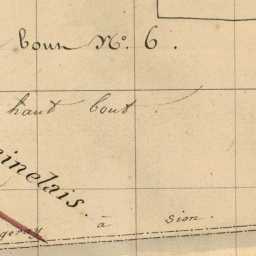 No. 6.
haut bout.
inelais.
à sion.